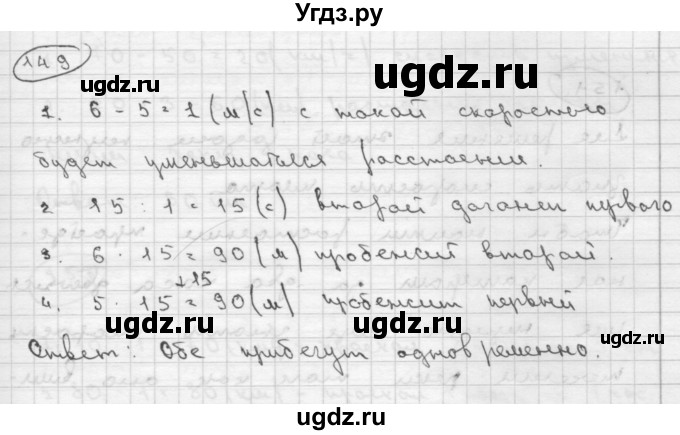 Угдз.ру
149
1. 6 - 5 = 1 (м/с) с такой скоростью
будет уменьшаться расстояния.
2 15 : 1 = 15 (с) второй догонен первого
3. 6 · 15 = 90 (м) пробежий второй.
+15
4. 5 · 15 = 90 (м) пробежит первый
Ответ: Обе прибегут одновременно.
ugdz.ru
ugdz.ru
ugdz.ru
ugdz.ru
ugdz.ru
ugdz.ru
ugdz.ru